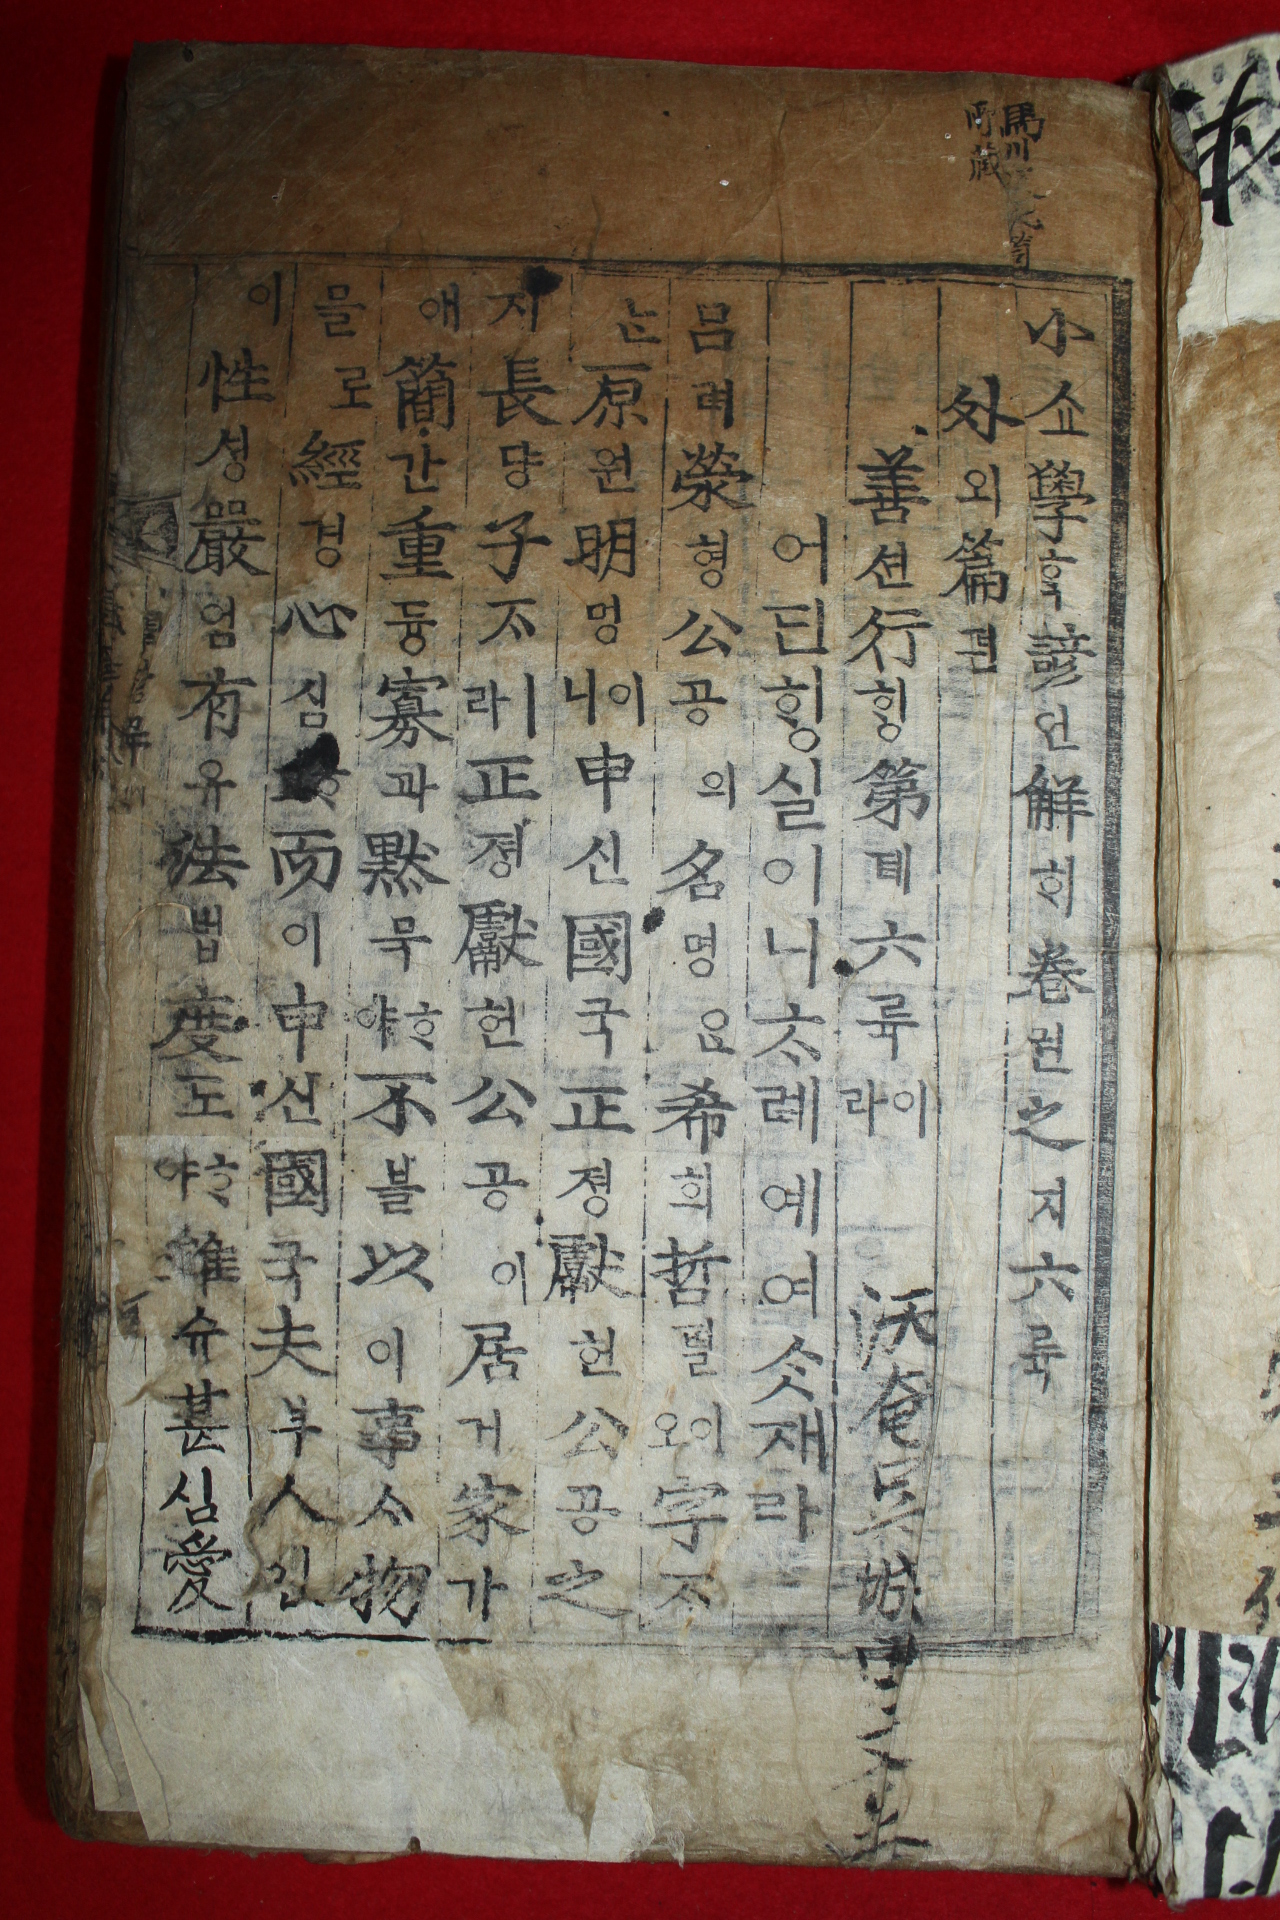 小쇼學ᄒᆞᆨ諺언解ᄒᆡ卷권之지六륙
外외篇편
善션行ᄒᆡᆼ第뎨六륙이라
어딘ᄒᆡᆼ실이니ᄎᆞ례예여ᄉᆞᆺ재라
呂려滎형公공의名명은希희哲텰이오字ᄌᆞ
ᄂᆞᆫ原원明명이니申신國국正졍獻헌公공之
지長댱子ᄌᆞㅣ라正졍獻헌公공이居거家가
애簡간重듕寡과黙묵ᄒᆞ야不블以이事ᄉᆞ物
믈로經경心심ᄒᆞ而이申신國국夫부人인
이性셩嚴엄有유法법度도ᄒᆞ야雖슈甚심愛
馬川
所藏
沃奄
城